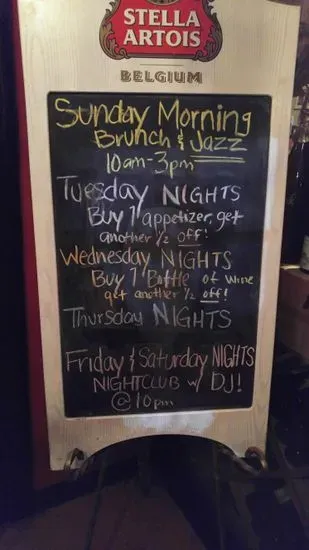 STELLA
ARTOIS
BELGIUM
Sunday Morning
Brunch & Jazz
10am-3pm
Tuesday NIGHTS
Buy 1 appetizer, get
another 1/2 off!
Wednesday NIGHTS
Buy 1 Bottle of wine
get another 1/2 off!
Thursday NIGHTS
Friday & Saturday NIGHTS
NIGHTCLUB w/ DJ!
@ 10pm